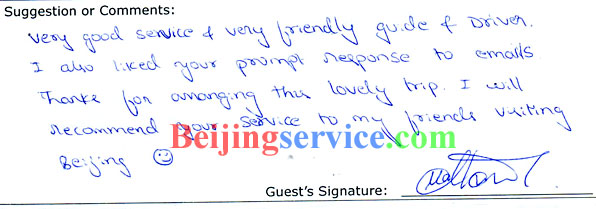 Suggestion or Comments:
very good service & very friendly guide & Driver.
I also liked your prompt response to emails
Thanks for arranging this lovely trip. I will
recommend your service to my friends visiting
Beijingservice.com
Beijing ☺
Guest's Signature: